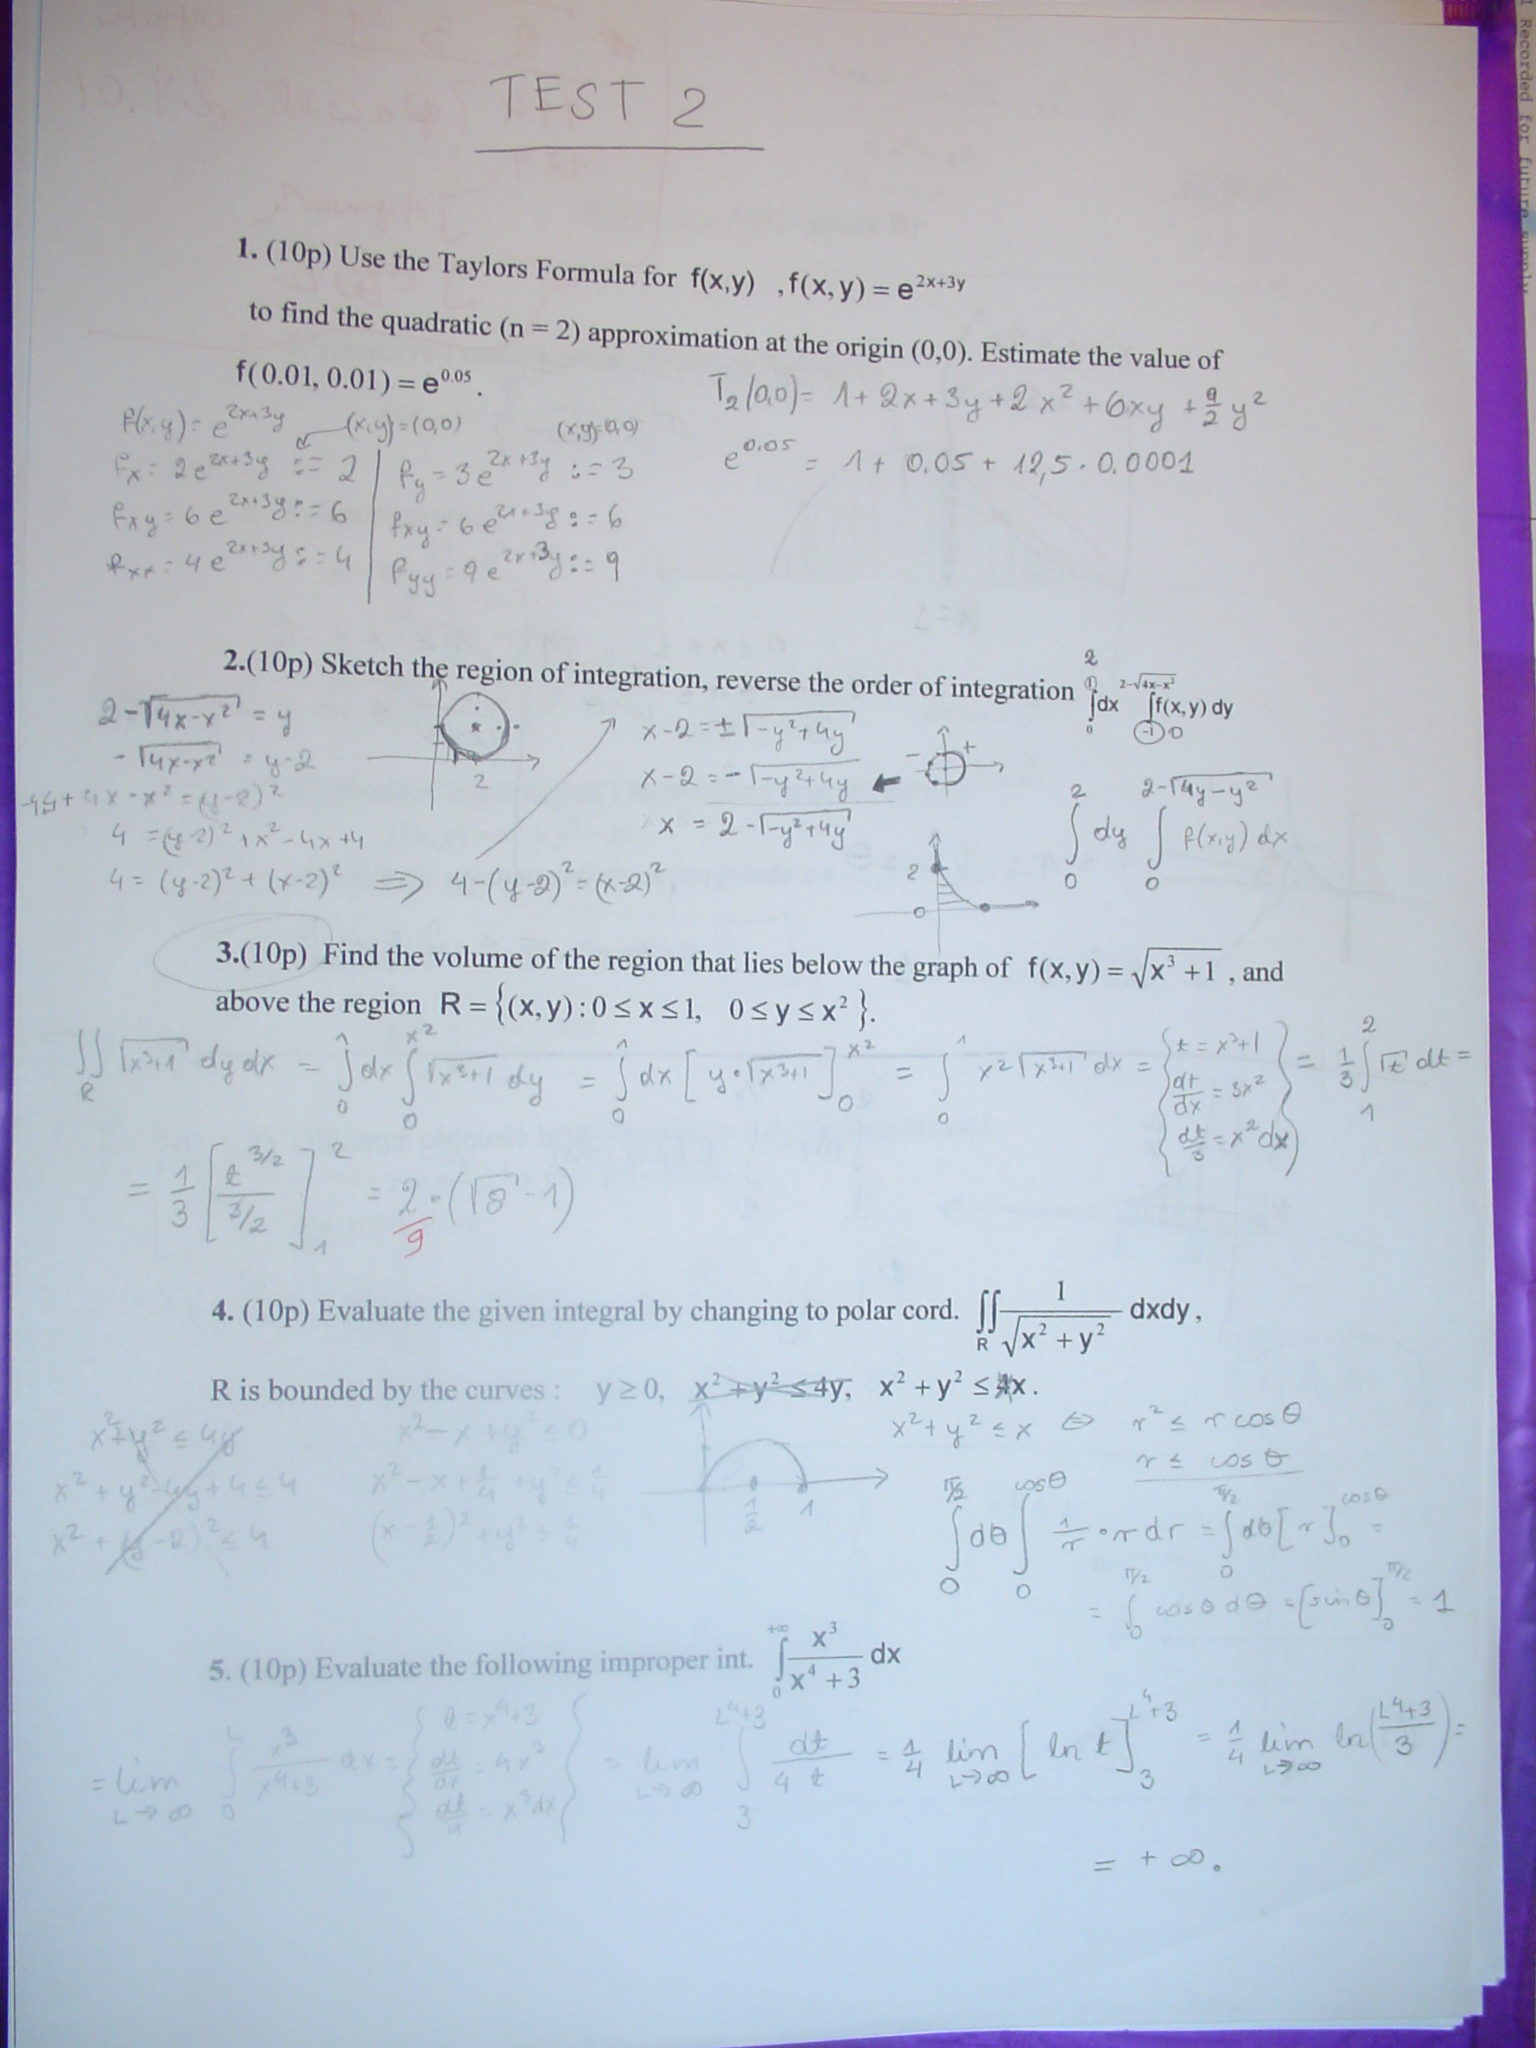 TEST 2
1. (10p) Use the Taylors Formula for f(x,y) , f(x,y) = e^{2x+3y}
to find the quadratic (n = 2) approximation at the origin (0,0). Estimate the value of
f(0.01, 0.01) = e^{0.05}.
T₂(0,0) = 1 + 2x + 3y + 2x² + 6xy + 9/2 y²
e^{0.05} = 1 + 0.05 + 12,5 · 0.0001
f(x,y) = e^{2x+3y} (x,y) = (0,0) (x,y)=(0,0)
fx = 2e^{2x+3y} := 2 | fy = 3e^{2x+3y} := 3
fxy = 6e^{2x+3y} := 6 | fxy = 6e^{2x+3y} := 6
fxx = 4e^{2x+3y} := 4 | fyy = 9e^{2x+3y} := 9
2.(10p) Sketch the region of integration, reverse the order of integration ∫_0^2 dx ∫_0^{2-√(4x-x²)} f(x,y) dy
2-√(4x-x²) = y
-√(4x-x²) = y-2
4x-x² = (y-2)²
4 = (y-2)² + x² - 4x + 4
4 = (y-2)² + (x-2)² ⇒ 4-(y-2)² = (x-2)²
2
x-2 = ±√(-y²+4y)
x-2 = -√(-y²+4y) - +
x = 2-√(-y²+4y)
2
0
∫_0^2 dy ∫_0^{2-√(4y-y²)} f(x,y) dx
3.(10p) Find the volume of the region that lies below the graph of f(x,y) = √(x³+1) , and
above the region R = {(x,y) : 0 ≤ x ≤ 1, 0 ≤ y ≤ x² }.
∬_R √(x³+1) dy dx = ∫_0^1 dx ∫_0^{x²} √(x³+1) dy = ∫_0^1 dx [y·√(x³+1)]_0^{x²} = ∫_0^1 x²√(x³+1) dx = {t = x³+1, dt/dx = 3x², dt/3 = x²dx} = 1/3 ∫_1^2 √t dt =
= 1/3 [t^{3/2} / 3/2]_1^2 = 2/9 · (√8 - 1)
4. (10p) Evaluate the given integral by changing to polar cord. ∬_R 1/√(x²+y²) dxdy ,
R is bounded by the curves : y ≥ 0, x² + y² ≤ 4y, x² + y² ≤ x .
x²+y² ≤ 4y
x² + y² - 4y + 4 ≤ 4
x² + (y-2)² ≤ 4
x² - x + y² ≤ 0
x² - x + 1/4 + y² ≤ 1/4
(x - 1/2)² + y² ≤ 1/4
1/2 1
x² + y² ≤ x ⇔ r² ≤ r cos θ
r ≤ cos θ
∫_0^{π/2} dθ ∫_0^{cosθ} 1/r · r dr = ∫_0^{π/2} dθ [r]_0^{cosθ} =
= ∫_0^{π/2} cosθ dθ = [sinθ]_0^{π/2} = 1
5. (10p) Evaluate the following improper int. ∫_0^{+∞} x³/(x⁴+3) dx
= lim_{L→∞} ∫_0^L x³/(x⁴+3) dx = {t = x⁴+3, dt/dx = 4x³, dt/4 = x³dx} = lim_{L→∞} ∫_3^{L⁴+3} dt/(4t) = 1/4 lim_{L→∞} [ln t]_3^{L⁴+3} = 1/4 lim_{L→∞} ln((L⁴+3)/3) =
= +∞.
1 Recorded for future supply